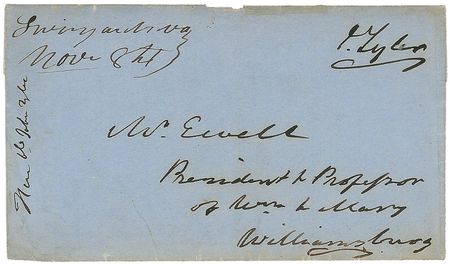 Swinyards va
Nov 8th
J. Tyler
Mr Ewell
President & Professor
of Wm & Mary
Williamsburg
John Tyler